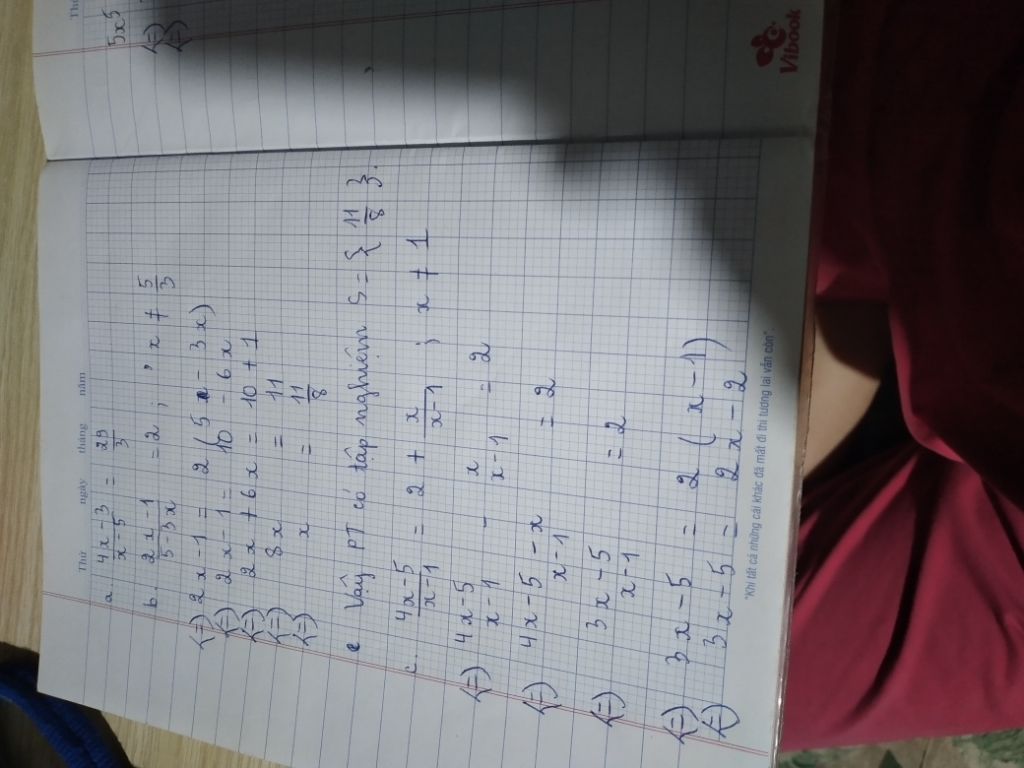 Thứ ngày tháng năm
a. \frac{4x-3}{x-5} = \frac{29}{3}
b. \frac{2x-1}{5-3x} = 2 ; , x ≠ \frac{5}{3}
(=) 2x-1 = 2(5x - 3x)
(=) 2x-1 = 10 - 6x
(=) 2x + 6x = 10 + 1
(=) 8x = 11
(=) x = \frac{11}{8}
Vậy PT có tập nghiệm S = { \frac{11}{8} }.
c. \frac{4x-5}{x-1} = 2 + \frac{x}{x-1} ; x ≠ 1
(=) \frac{4x-5}{x-1} - \frac{x}{x-1} = 2
(=) \frac{4x-5-x}{x-1} = 2
(=) \frac{3x-5}{x-1} = 2
(=) 3x-5 = 2(x-1)
(=) 3x-5 = 2x-2
"Khi tất cả những cái khác đã mất đi thì tương lai vẫn còn".
5x5
(=)
(=)
Vibook